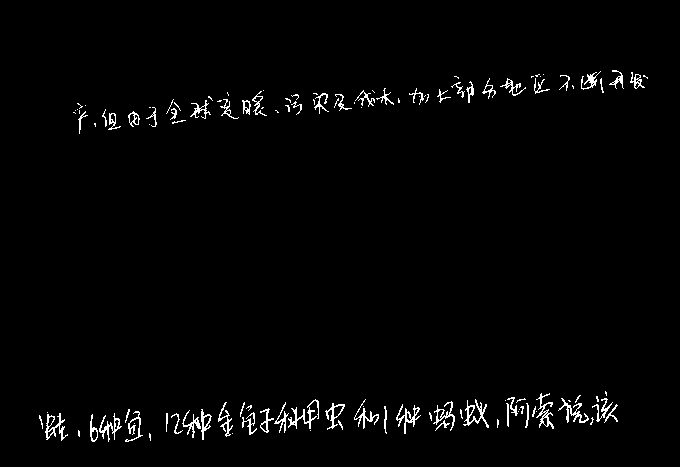 产,但由于全球变暖、污染及伐木,加上部分地区不断开发
蛙,6种鱼,12种金龟子科甲虫和1种蚂蚁,阿索说,该